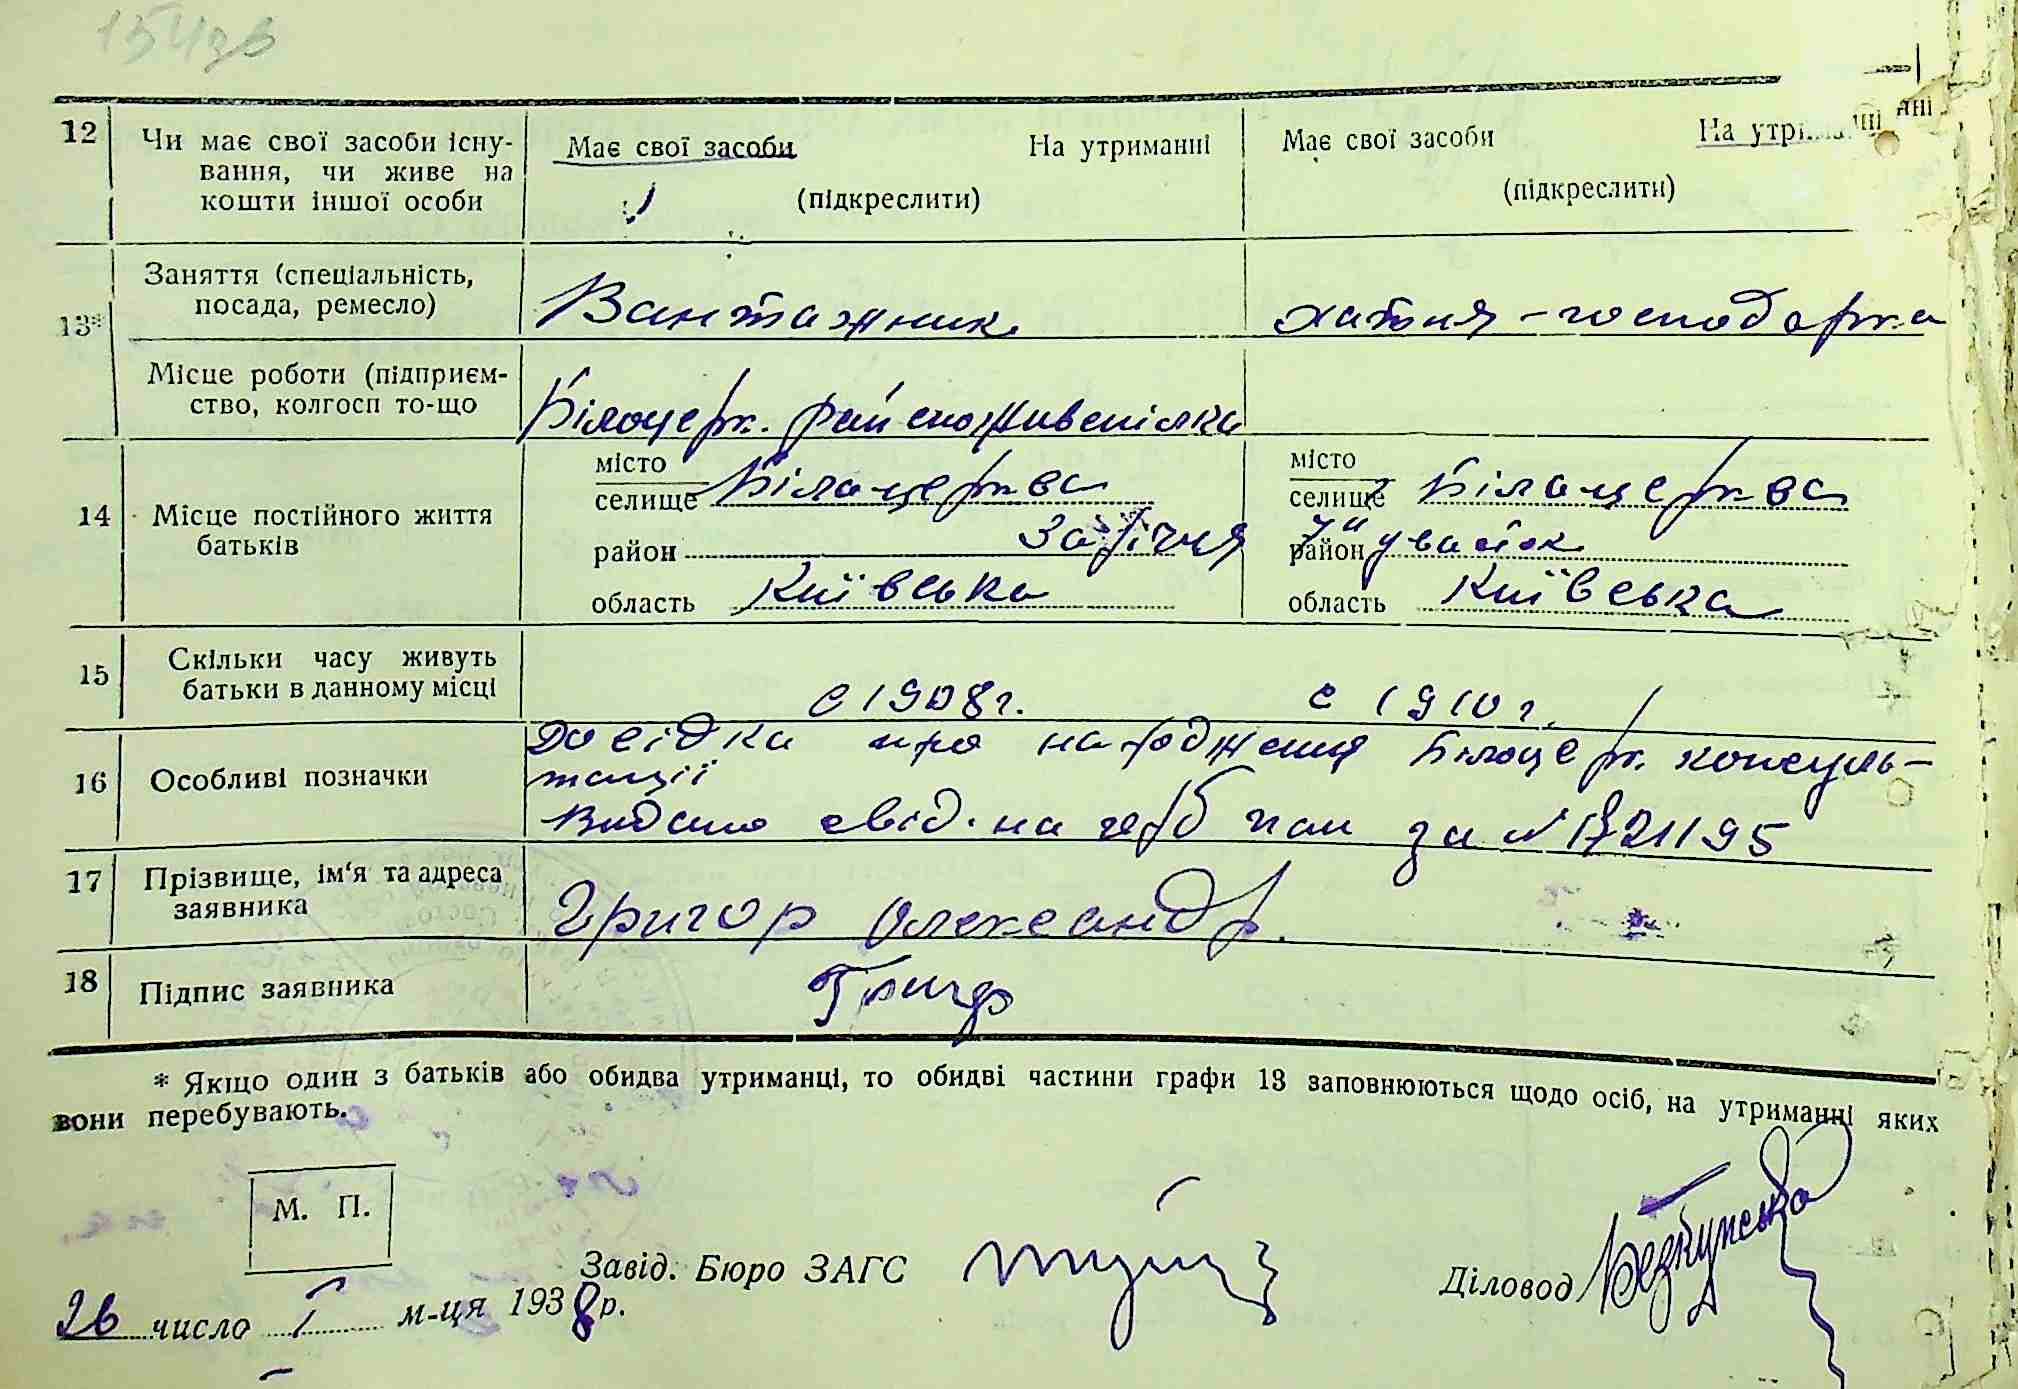 154зв
12 Чи має свої засоби існу- Має свої засоби На утриманні Має свої засоби На утриманні
вання, чи живе на
кошти іншої особи (підкреслити) (підкреслити)
13* Заняття (спеціальність,
посада, ремесло) Вантажник хатня-господарка
Місце роботи (підприєм-
ство, колгосп то-що Білоцерк. райспоживспілка
14 Місце постійного життя
батьків
місто
селище Білацерква
район Заріччя
область Київська
місто
селище Білацерква
район
область Київська
15 Скільки часу живуть
батьки в данному місці с 1908 г. с 1910 г.
16 Особливі позначки Довідка про народження Білоцерк. консуль-
тації
Видано свід. на герб пап за №
17 Прізвище, ім'я та адреса
заявника Григор Олександр.
18 Підпис заявника Григор
* Якщо один з батьків або обидва утриманці, то обидві частини графи 13 заповнюються щодо осіб, на утриманні яких
вони перебувають.
М. П.
Завід. Бюро ЗАГС
Діловод
26 число І м-ця 1938 р.